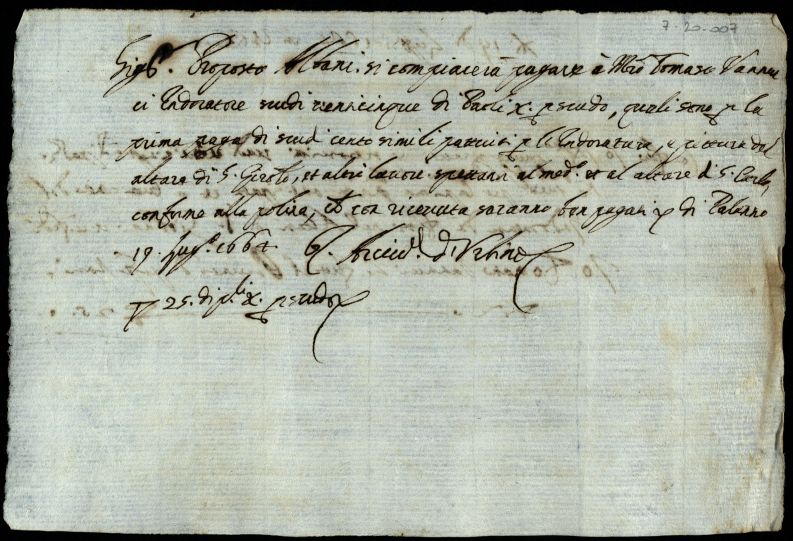 7-20-007
Sig.r Proposto Albani. si compiacerà pagare à Mro Tomaso Vannuc
ci Indoratore scudi venticinque di Paoli X. p scudo, quali sono p la
prima paga di scudi cento simili pattuiti p l'Indoratura, e pittura del
altare di S. Girol.o, et altri lavori spettanti al med.o et al altare di S. Carlo,
conforme alla poliza, che con ricevuta saranno ben pagati di Palazzo
19. 1664. Arciv. d'Urbino
25. di p.li X. p scudo